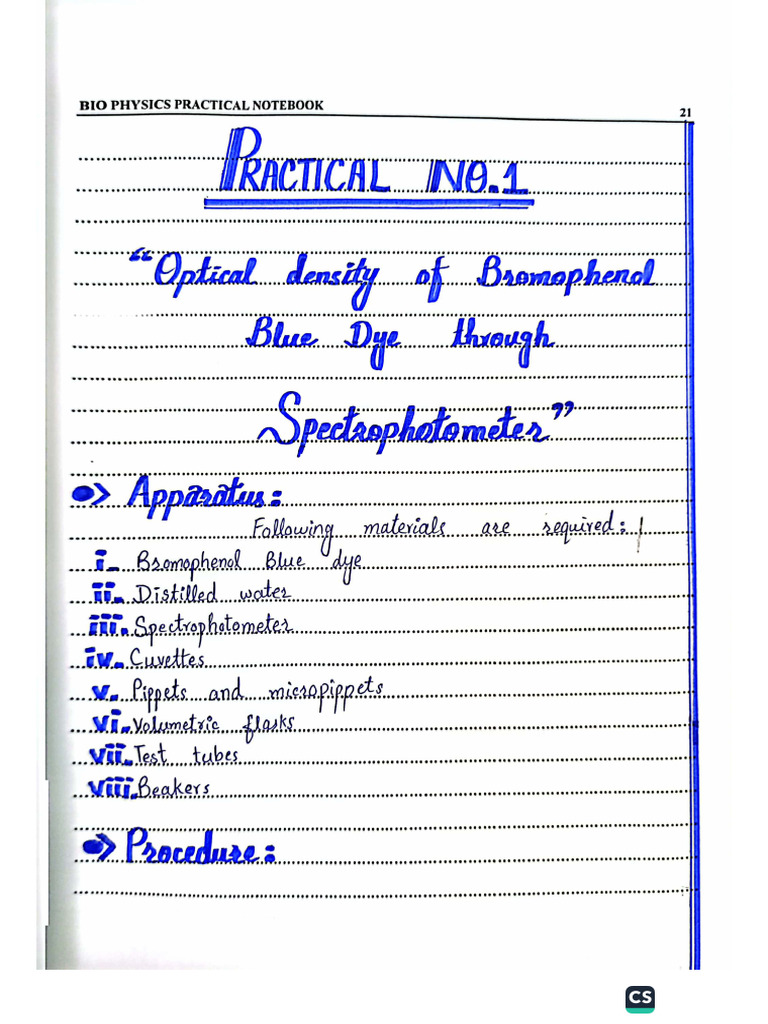 BIO PHYSICS PRACTICAL NOTEBOOK
21
PRACTICAL NO.1
"Optical density of Bromophenol
Blue Dye through
Spectrophotometer"
Apparatus:
Following materials are required:
i. Bromophenol Blue dye
ii. Distilled water
iii. Spectrophotometer
iv. Cuvettes
v. Pippets and micropippets
vi. Volumetric flasks
vii. Test tubes
viii. Beakers
Procedure:
CS